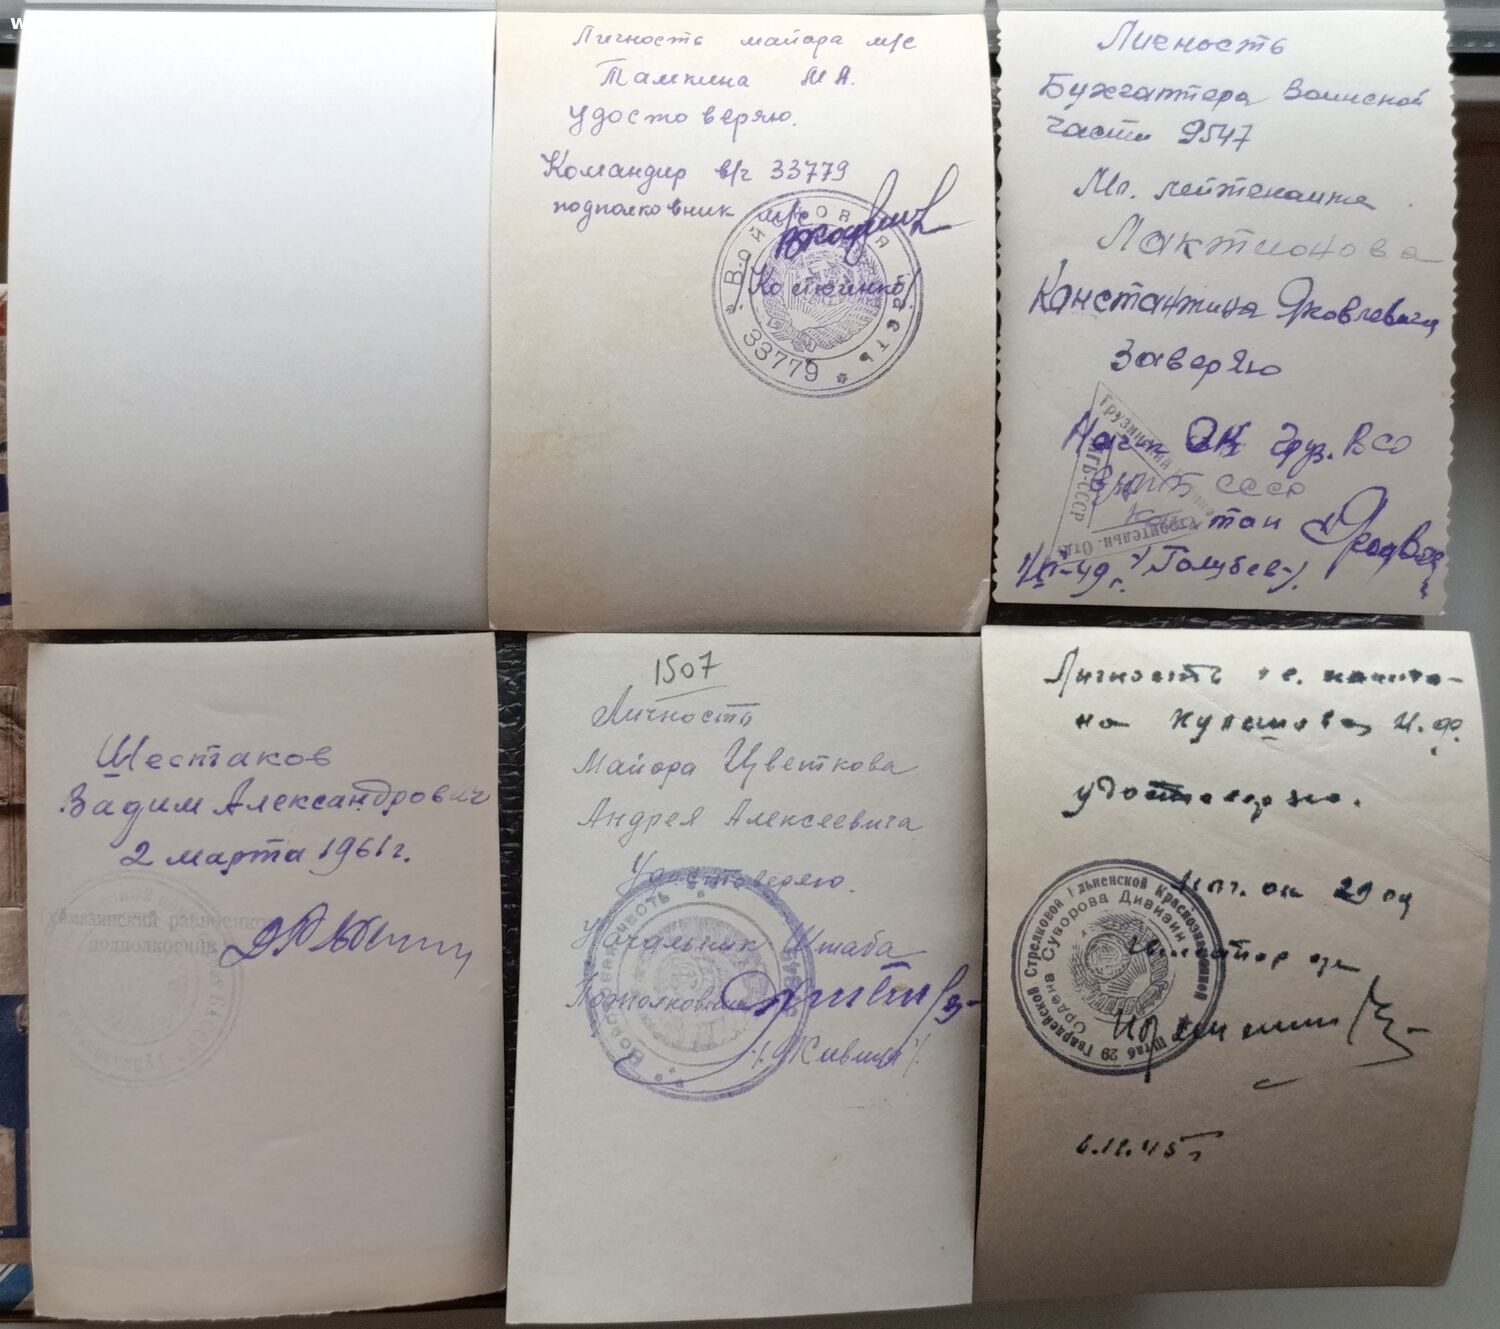 Личность майора м/с
Тамкина М А.
удостоверяю.
Командир в/ч 33779
подполковник м/с
/Костюченко/
Войсковая часть
* 33779 *
Личность
Бухгалтера Воинской
части 9547
Мл. лейтенанта
Лактионова
Константина Яковлевича
Заверяю
Нач. ОК Груз. ВСО
СССР
/Голубев/
Грузинский
МГБ-СССР
Строительн. Отд.
Шестаков
Вадим Александрович
2 марта 1961 г.
подполковник
1507
Личность
Майора Цветкова
Андрея Алексеевича
Удостоверяю.
Начальник Штаба
Подполковник
Войсковая часть
Личность гв. капита-
на И.Ф.
удостоверяю.
Нач. 29
Штаб 29 Гвардейской Стрелковой Ельненской Краснознаменной
Ордена Суворова Дивизии
6.11.45 г